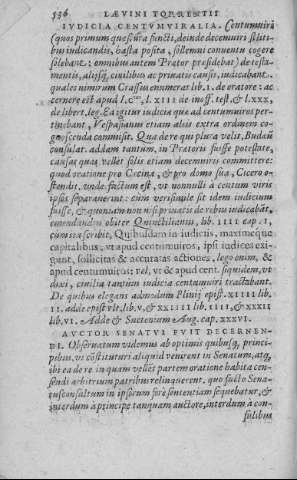 536 LÆVINI TORRENTII
IVDICIA CENTVMVIRALIA. Centumuiri
(quos primum quæstura functi, deinde decemuiri stliti-
bus iudicandis, hasta posita, sollemni conuentu cogere
solebant: omnibus autem Prætor præsidebat) de testa-
mentis, aliisq́; ciuilibus ac priuatis causis, iudicabant.
quales nimirum Crassus enumerat lib. 1. de oratore: ac
cernere est apud l. XIII de inoff. test. & l. XXX,
de libert. leg. Ea igitur iudicia quæ ad centumuiros per-
tinebant, Vespasianus etiam aliis extra ordinem co-
gnoscenda commisit. Qua de re qui plura velit, Budæū
consulat. addam tantum, in Prætoris fuisse potestate,
causas quas vellet solis etiam decemuiris committere:
quod oratione pro Cæcina, & pro domo sua, Cicero o-
stendit. vnde factum est, vt nonnulli a centum viris
ipsos separauerint: cùm verisimile sit idem iudicium
fuisse, & quoniam non nisi priuatis de rebus iudicabāt,
emendandus obiter Quinctilianus, lib. IIII cap. 1,
cum ita scribit, Quibusdam in iudiciis, maximeque
capitalibus, vt apud centumuiros, ipsi iudices exi-
gunt, sollicitas & accuratas actiones, lego enim, &
apud centumuiros: vel, vt & apud cent. siquidem, vt
dixi, ciuilia tantùm iudicia centumuiri tractabant.
De quibus elegans admodum Plinij epist. XIIII lib.
II. adde epist. vlt. lib. V, & XXIIII lib. IIII, & XXXII
lib. VI. Adde & Suetonium Aug. cap. XXXVI.
AVCTOR SENATVI FVIT DECERNEN-
DI. Obseruatum videmus ab optimis quibusq́; princi-
pibus, vt cōstituturi aliquid venirent in Senatum, atq́;
ibi ea de re in quam vellēt partem oratione habita cen-
sendi arbitrium patribus relinquerent. quo facto Sena-
tusconsultum in ipsorum ferè sententiam sequebatur, &
interdum à principe tanquam auctore, interdum à con-
sulibus